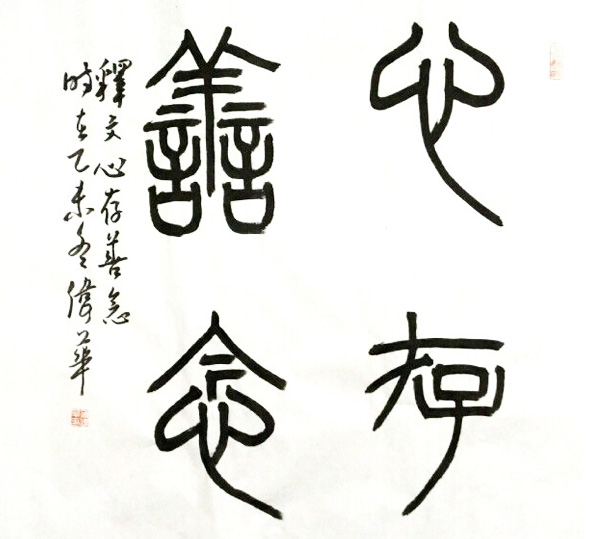 心存
善念
釋文心存善念
時在乙未冬偉華